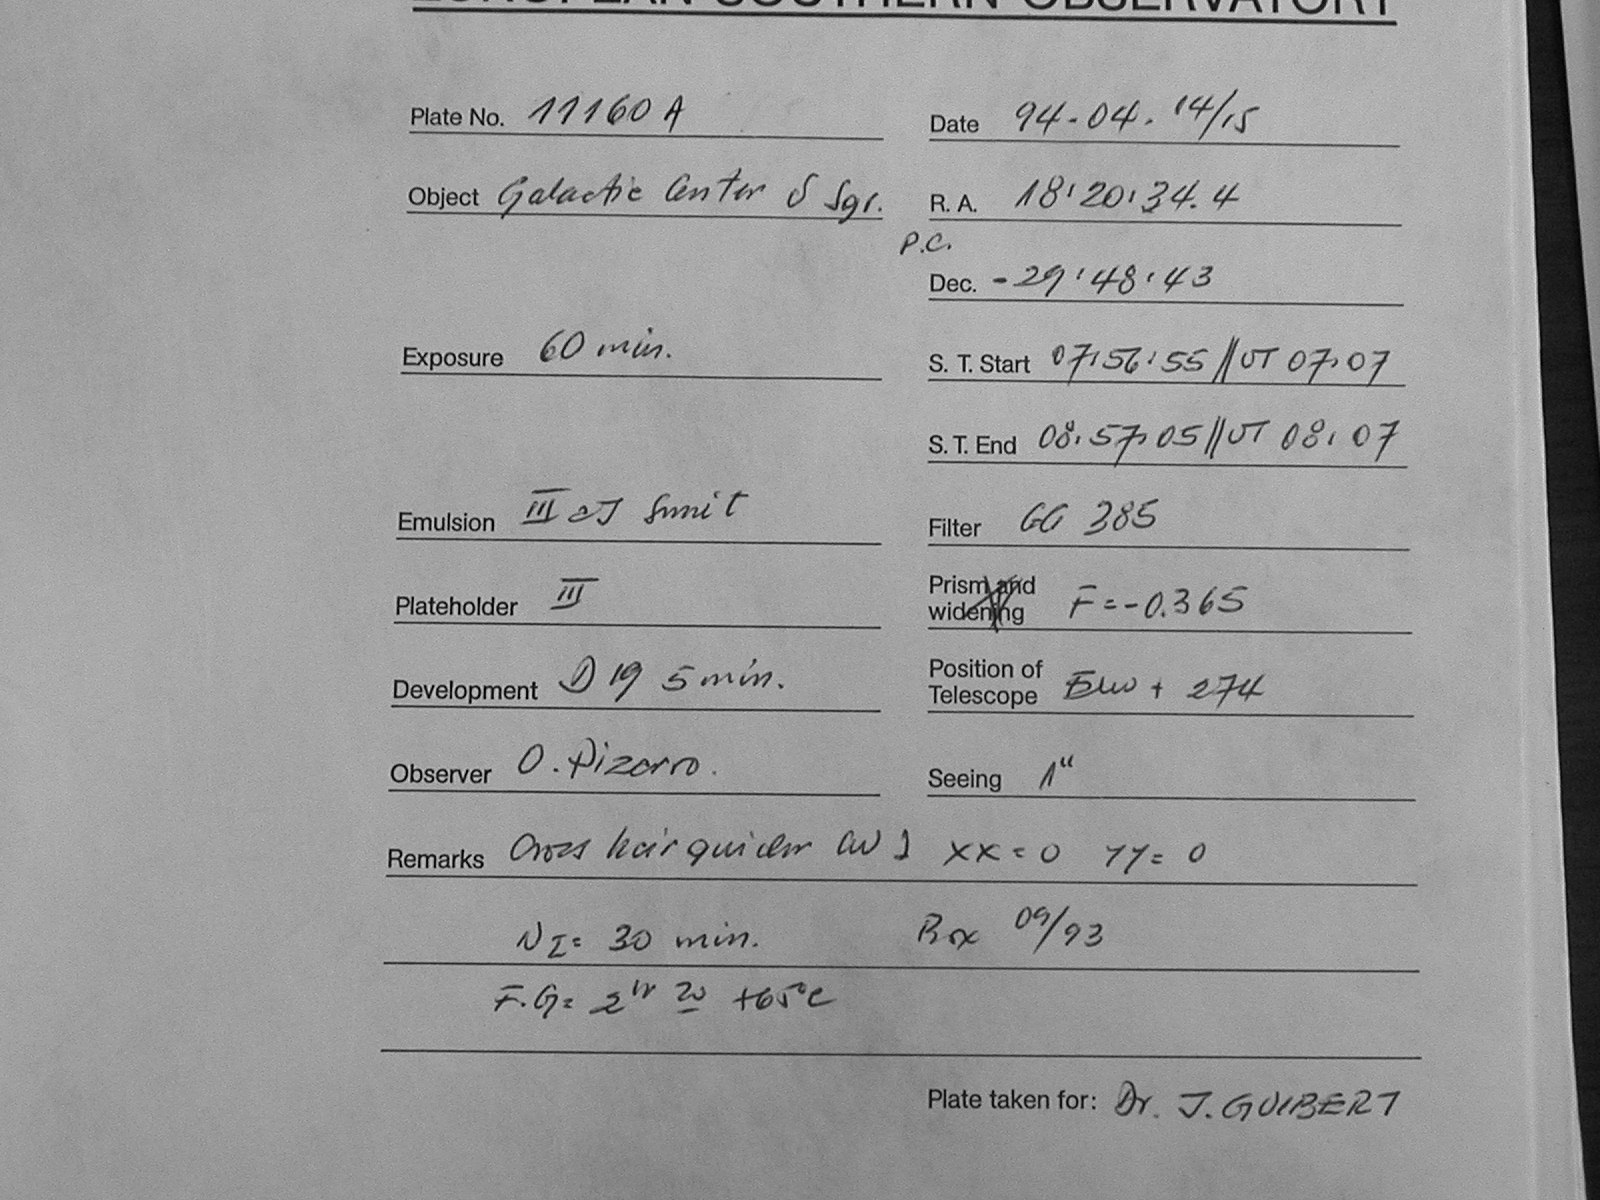 EUROPEAN SOUTHERN OBSERVATORY
Plate No. 11160 A
Date 94-04. 14/15
Object Galactic Center δ Sgr.
R. A. 18:20:34.4
P.C.
Dec. -29:48:43
Exposure 60 min.
S. T. Start 07:56:55 // UT 07:07
S. T. End 08:57:05 // UT 08:07
Emulsion III aJ
Filter GG 385
Plateholder III
Prism and
widening F = -0.365
Development D 19 5 min.
Position of
Telescope + 274
Observer O. Pizarro.
Seeing 1"
Remarks Cross hair guider XX = 0 YY = 0
30 min. Box 09/93
F.G = +65°C
Plate taken for: Dr. J. GUIBERT